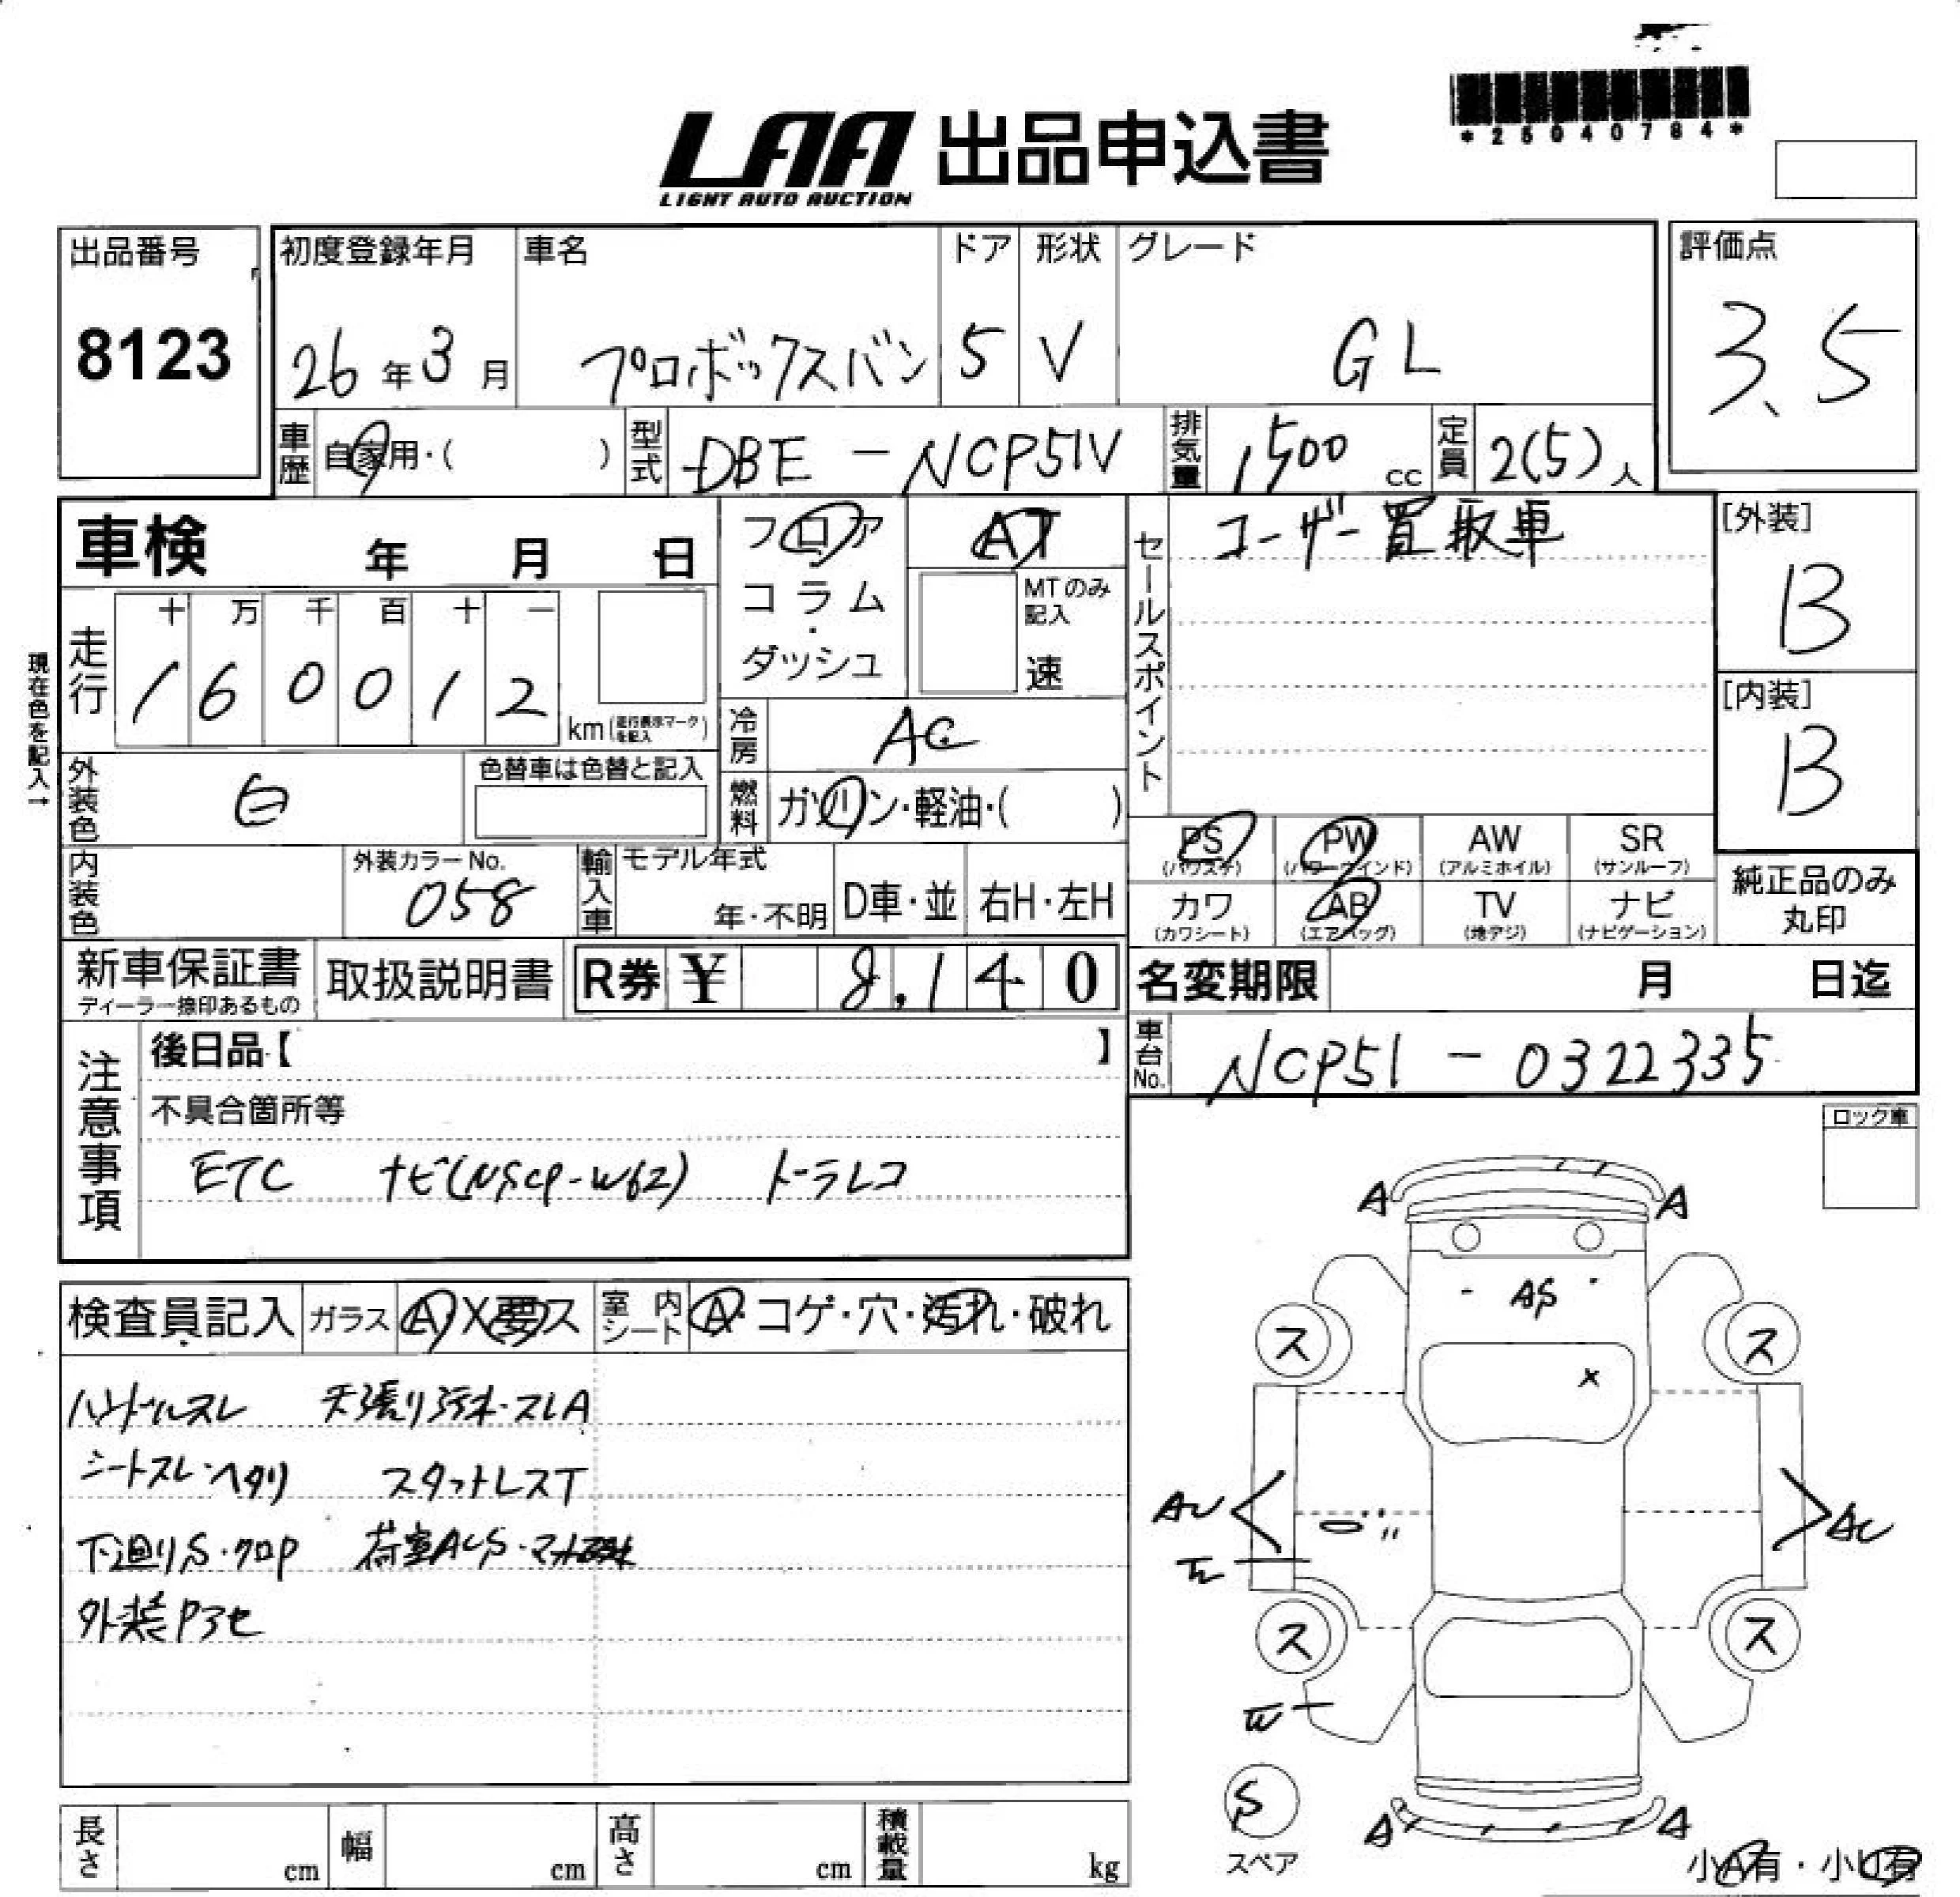 *25040784*
LAA 出品申込書
LIGHT AUTO AUCTION
出品番号
8123
初度登録年月
26年3月
車名
プロボックスバン
ドア
5
形状
V
グレード
GL
評価点
3.5
車歴
自家用・( )
型式
DBE-NCP51V
排気量
1500cc
定員
2(5)人
車検 年 月 日
フロア
コラム
・
ダッシュ
AT
MTのみ
記入
速
セールスポイント
ユーザー買取車
[外装]
B
[内装]
B
現在色を記入→
走行
十 万 千 百 十 一
1 6 0 0 1 2
km(走行表示マークを記入)
冷房
AC
外装色
白
色替車は色替と記入
燃料
ガソリン・軽油・( )
内装色
外装カラーNo.
058
輸入車
モデル年式
年・不明
D車・並
右H・左H
PS
(パワステ)
PW
(パワーウインド)
AW
(アルミホイル)
SR
(サンルーフ)
カワ
(カワシート)
AB
(エアバッグ)
TV
(地デジ)
ナビ
(ナビゲーション)
純正品のみ
丸印
新車保証書
ディーラー捺印あるもの
取扱説明書
R券 ¥ 8,140
名変期限 月 日迄
車台No.
NCP51-0322335
注意事項
後日品【 】
不具合箇所等
ETC ナビ(NSCP-W62) ドラレコ
ロック車
検査員記入
ガラス
A・X要ス
室内シート
A・コゲ・穴・汚れ・破れ
ハンドルスレ 天張り汚れ・スレA
シートスレ・ヘタリ スタットレスT
下廻りS・クロP 荷室ACS・マット
外装Pアセ
A A
AS
ス ス
X
AU
AC
ス ス
S
スペア
A A
小A有・小U有
長さ cm
幅 cm
高さ cm
積載量 kg